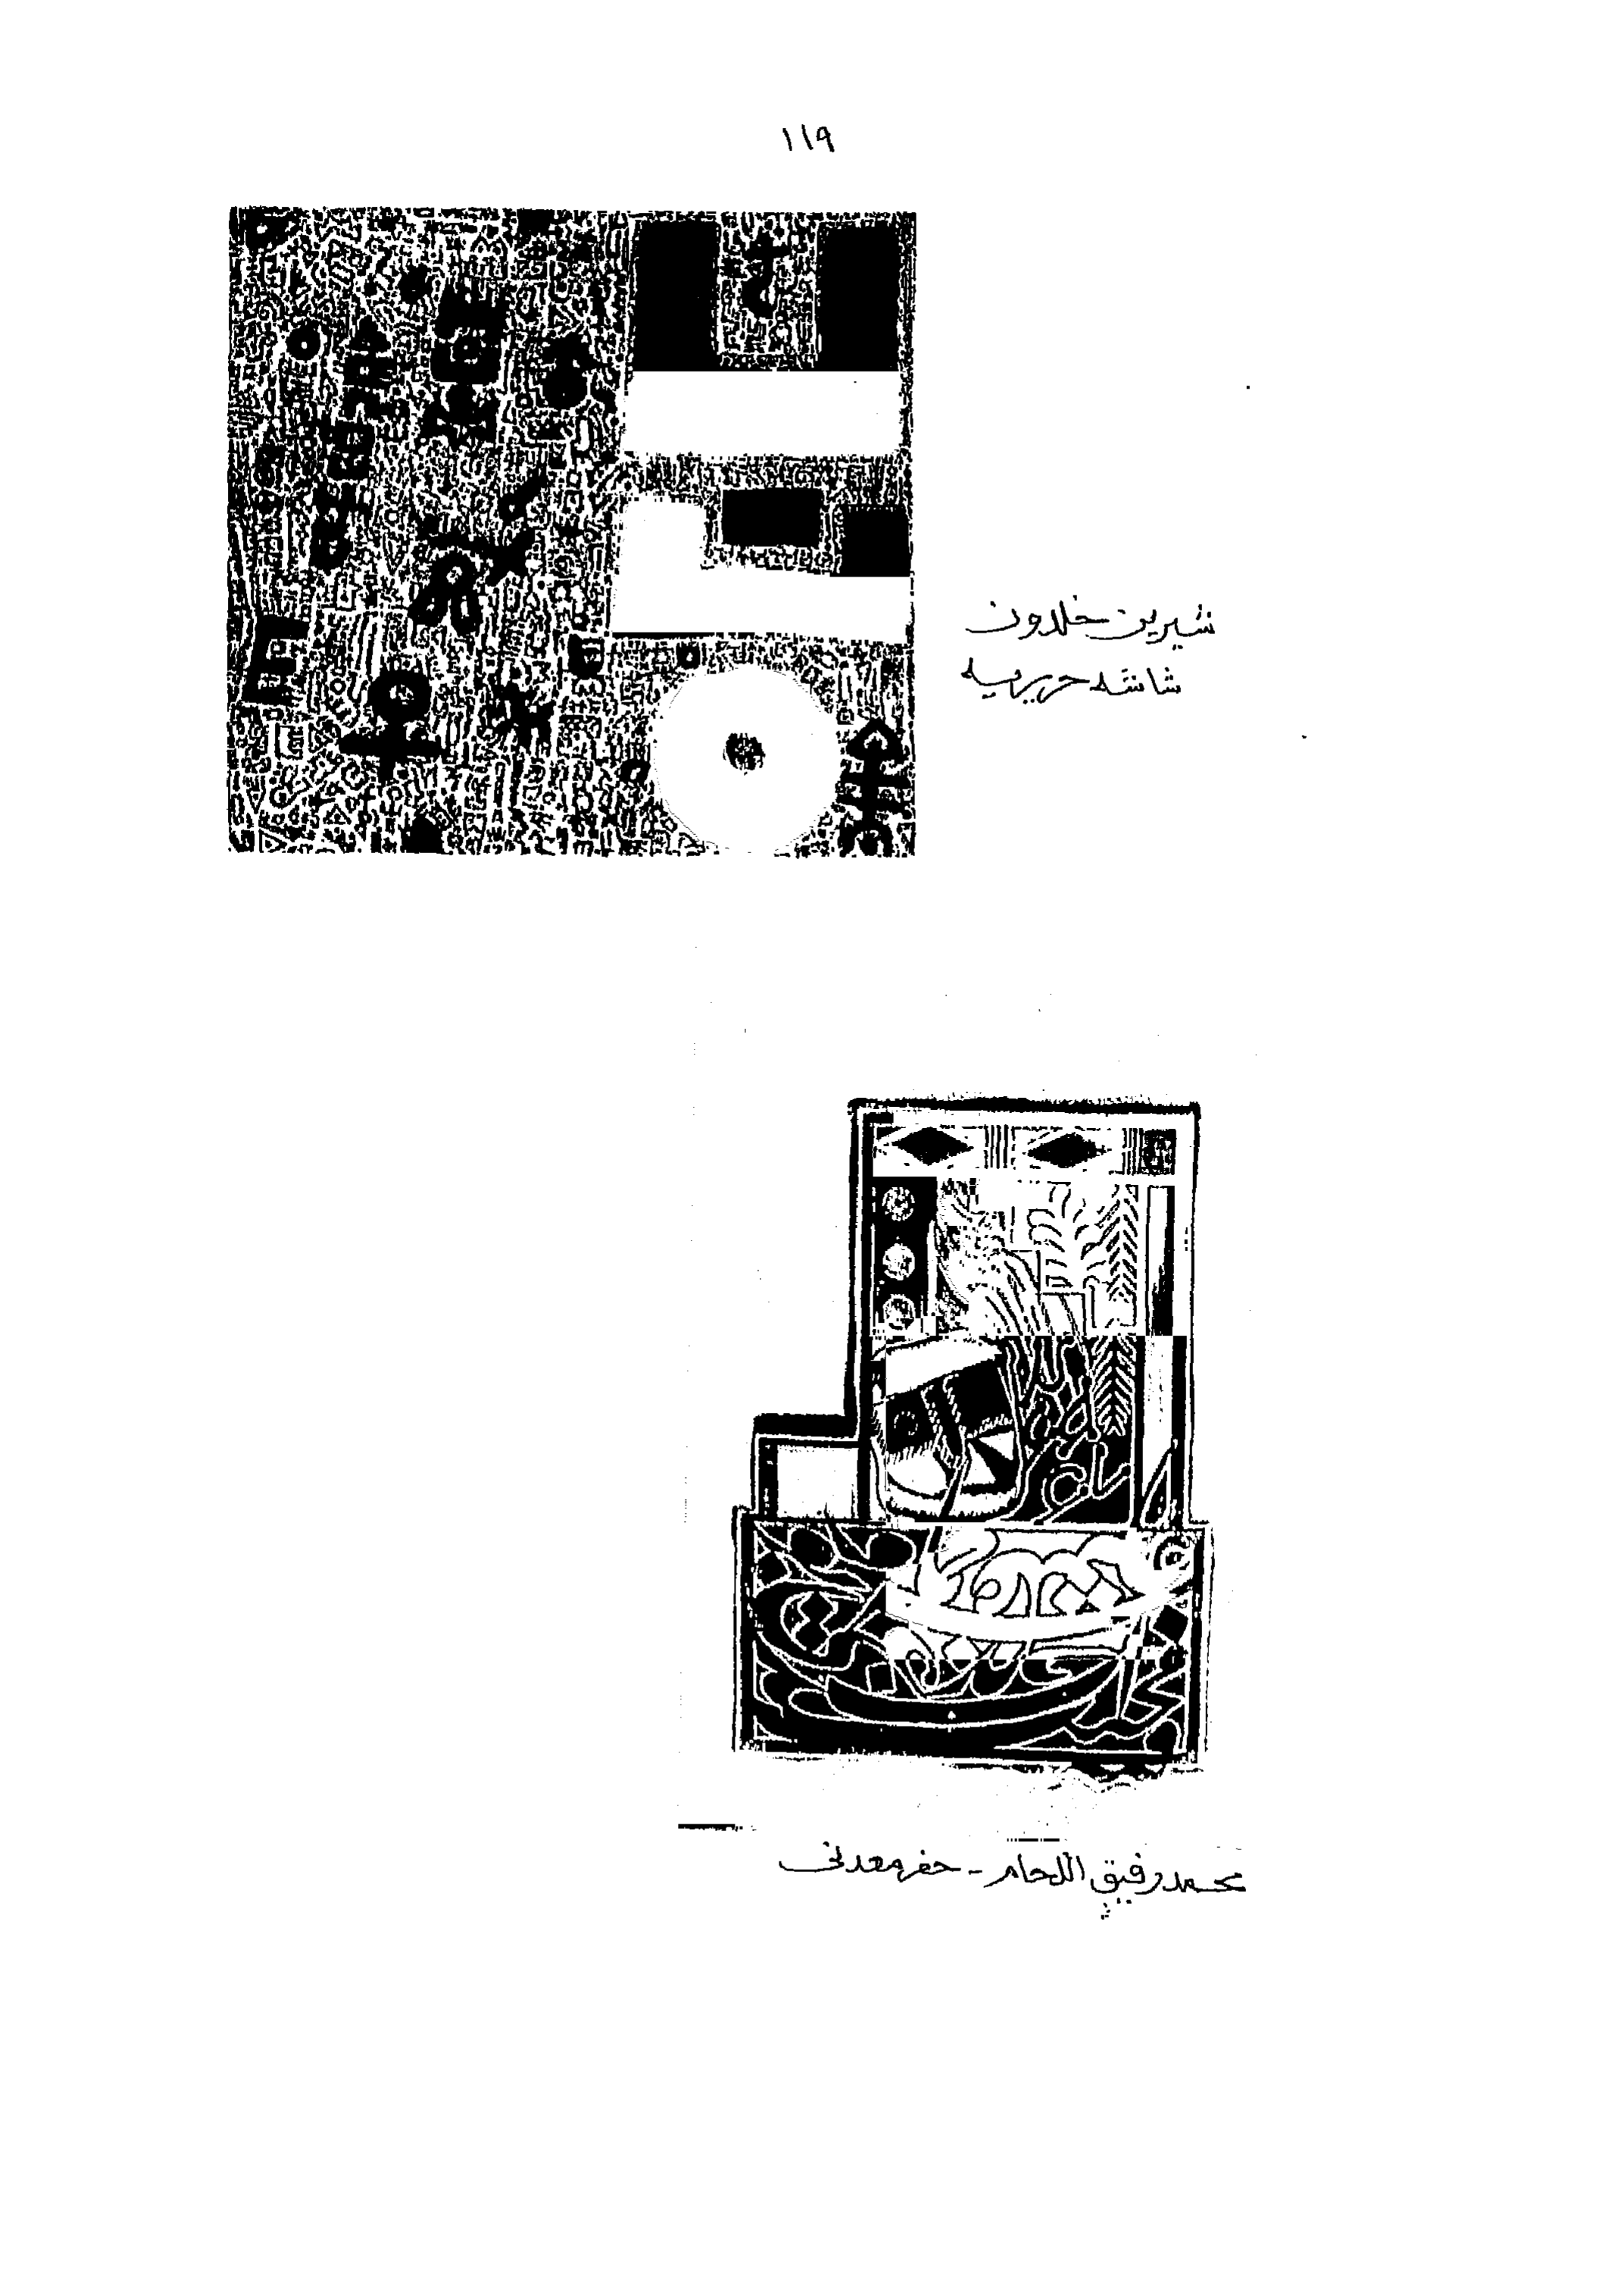 ١١٩
شيرين خلدون
شاشه حريريه
محمد رفيق اللحام - حفر معدني